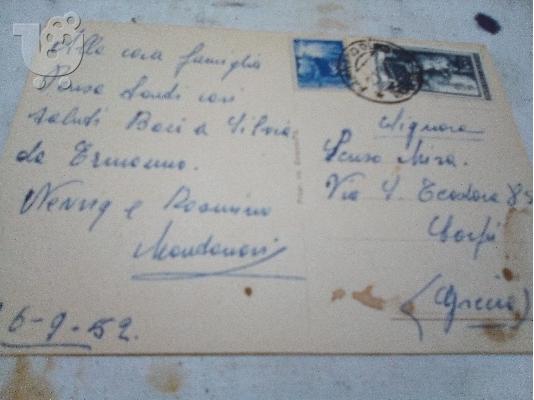 Alla cara famiglia
Penso tanti cari
saluti Baci a Silvia
da Ermanno.
e
Mondanari
6-9-52.
Signora
Penso Mira.
Via S. Teodora 85
Corfù
(Grecia)